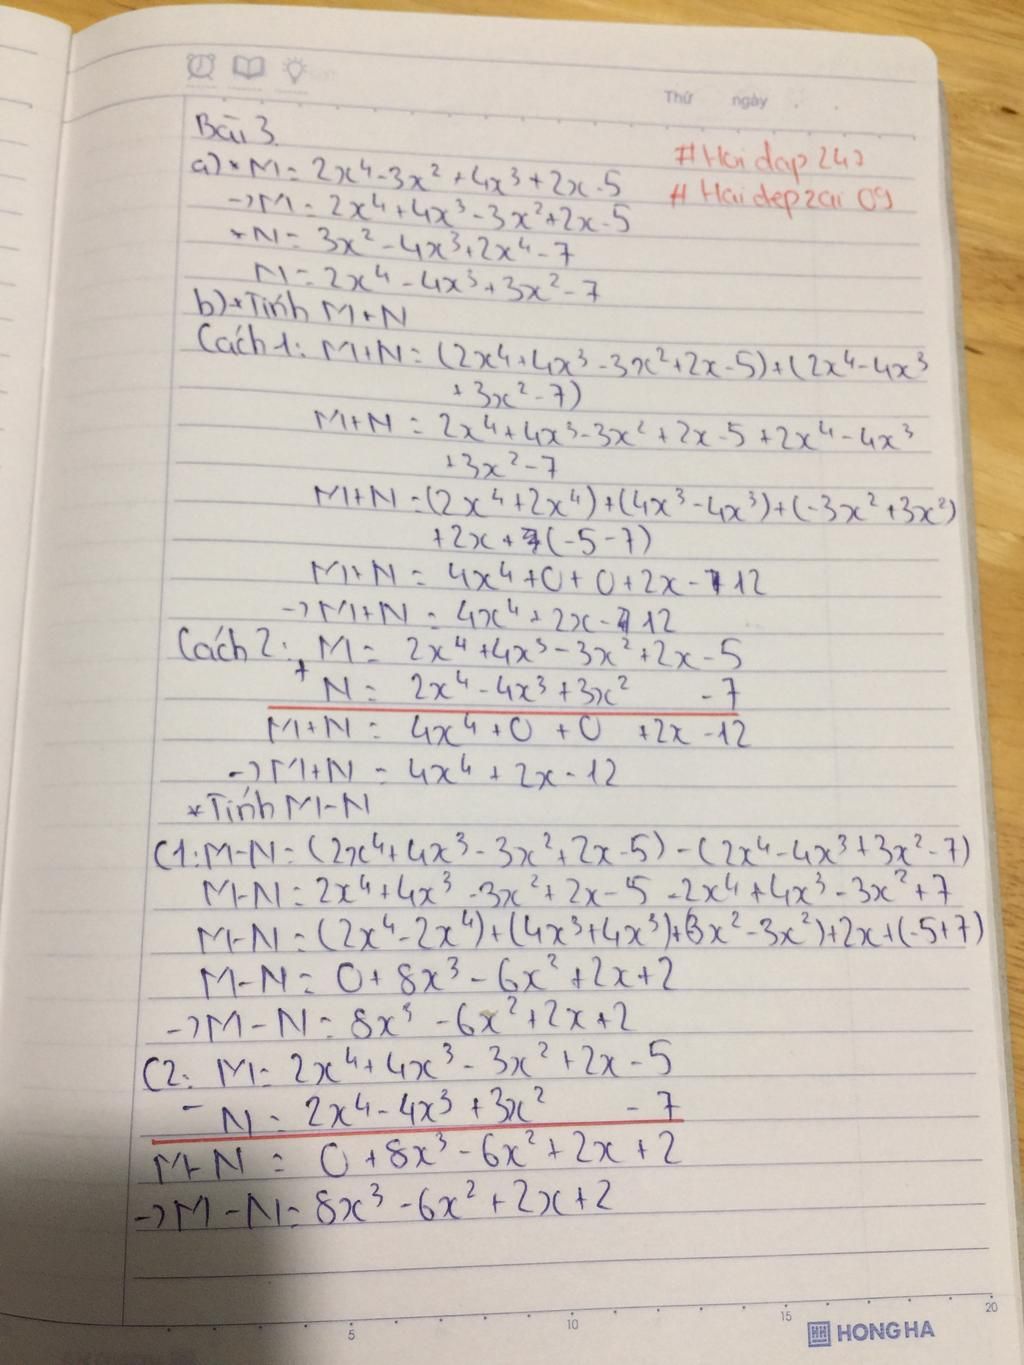 Thứ ngày
Bài 3
#Hoidap247
a) * M = 2x⁴ - 3x² + 4x³ + 2x - 5
# Haidepzai 09
-> M = 2x⁴ + 4x³ - 3x² + 2x - 5
* N = 3x² - 4x³ + 2x⁴ - 7
N = 2x⁴ - 4x³ + 3x² - 7
b) * Tính M+N
Cách 1: M+N = (2x⁴ + 4x³ - 3x² + 2x - 5) + (2x⁴ - 4x³
+ 3x² - 7)
M+N = 2x⁴ + 4x³ - 3x² + 2x - 5 + 2x⁴ - 4x³
+ 3x² - 7
M+N = (2x⁴ + 2x⁴) + (4x³ - 4x³) + (-3x² + 3x²)
+ 2x + (-5 - 7)
M+N = 4x⁴ + 0 + 0 + 2x - 12
-> M+N = 4x⁴ + 2x - 12
Cách 2: M = 2x⁴ + 4x³ - 3x² + 2x - 5
+
N = 2x⁴ - 4x³ + 3x² - 7
M+N = 4x⁴ + 0 + 0 + 2x - 12
-> M+N = 4x⁴ + 2x - 12
* Tính M-N
C1: M-N = (2x⁴ + 4x³ - 3x² + 2x - 5) - (2x⁴ - 4x³ + 3x² - 7)
M-N = 2x⁴ + 4x³ - 3x² + 2x - 5 - 2x⁴ + 4x³ - 3x² + 7
M-N = (2x⁴ - 2x⁴) + (4x³ + 4x³) + (3x² - 3x²) + 2x + (-5 + 7)
M-N = 0 + 8x³ - 6x² + 2x + 2
-> M-N = 8x³ - 6x² + 2x + 2
C2: M = 2x⁴ + 4x³ - 3x² + 2x - 5
-
N = 2x⁴ - 4x³ + 3x² - 7
M-N = 0 + 8x³ - 6x² + 2x + 2
-> M-N = 8x³ - 6x² + 2x + 2
5 10 15 20
HONG HA